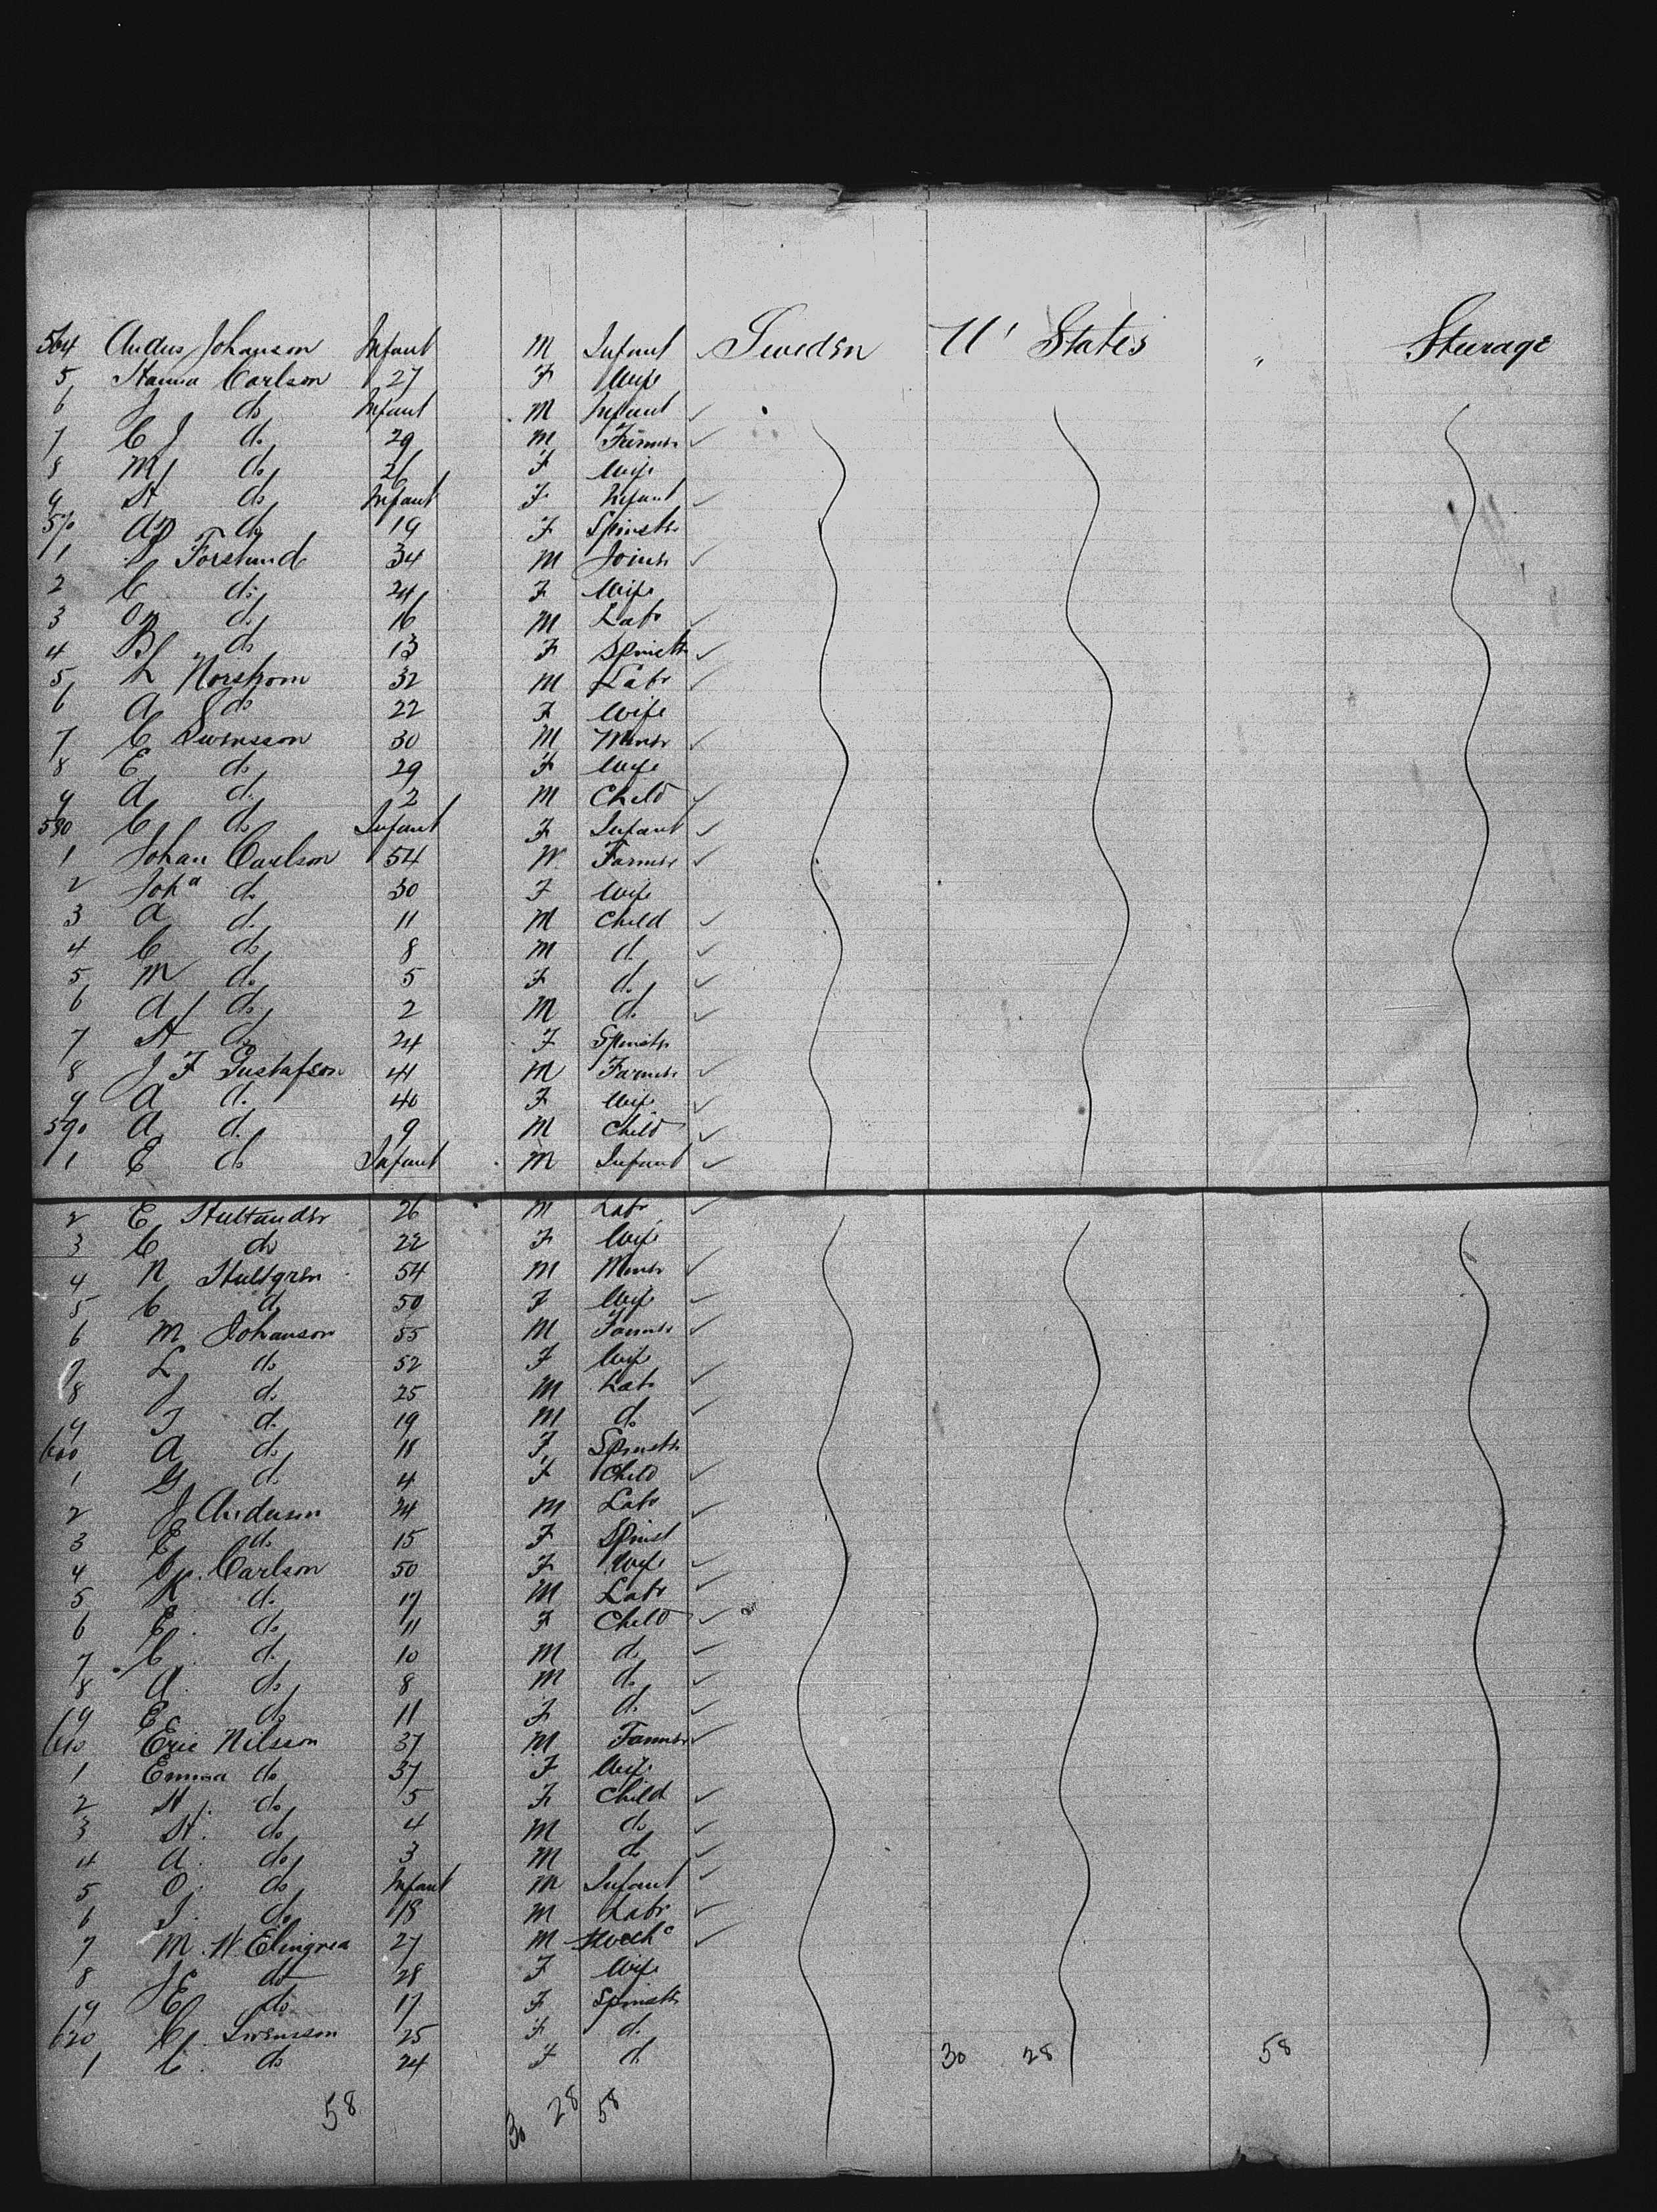 564 Andus Johanson Infant M Infant Sweden U' States " Steerage
5 Hanna Carlson 27 F Wife
6 J do Infant M Infant
7 C J do 29 M Farmer
8 M do 26 F Wife
9 H do Infant F Infant
570 do 19 F Spinstr
1 Forslund 34 M Joiner
2 C do 24 F Wife
3 do 16 M Labr
4 B do 13 F Spinstr
5 L Norstrom 32 M Labr
6 A do 22 F Wife
7 C Swensson 30 M Miner
8 E do 29 F Wife
9 A do 2 M Child
580 C do Infant F Infant
1 Johan Carlson 54 M Farmer
2 Joha do 30 F Wife
3 A do 11 M Child
4 C do 8 M do
5 M do 5 F do
6 A do 2 M do
7 H do 24 F Spinstr
8 J F Gustafson 41 M Farmer
9 A do 40 F Wife
590 A do 9 M Child
1 E do Infant M Infant
2 E Hultander 26 M Labr
3 C do 22 F Wife
4 N Hultgren 54 M Miner
5 C do 50 F Wife
6 M Johanson 55 M Farmer
7 L do 52 F Wife
8 J do 25 M Labr
9 do 19 M do
600 A do 18 F Spinstr
1 G do 4 F Child
2 J Anderson 24 M Labr
3 E do 15 F Spinst
4 C Carlson 50 F Wife
5 K do 17 M Labr
6 E do 11 F Child
7 C do 10 M do
8 A do 8 M do
9 E do 11 F do
610 Eric Nilsson 37 M Farmer
1 Emma do 37 F Wife
2 H do 5 F Child
3 H do 4 M do
4 A do 3 M do
5 O do Infant M Infant
6 do 18 M Labr
7 M. W 27 M
8 J E do 28 F Wife
9 E do 17 F Spinstr
620 C Swensson 25 F do
1 C do 24 F do 30 28 58
58 30 28 58